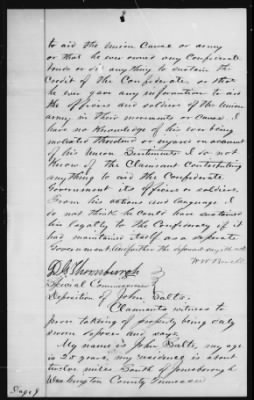 to aid the Union Cause or army
or that he ever owned any Confederate
bonds or did anything to sustain the
Credit of the Confederate or that
he ever gave any information to aid
the officers and soldiers of the Union
army in their movements or cause I
have no Knowledge of his ever being
molested threatened or injured on account
of his Union Sentiments I do not
Know of the Claimant Contributing
anything to aid the Confederate
Government its officers or soldiers
From his actions and language I
do not think he Could have sustained
his loyalty to the Confederacy if it
had maintained itself as a seperate
Government and further the deponent sayeth not
W W
D A Thornburgh
Special Commissioner
Deposition of John Salts.
Claimants witness to
prove taking of property being duly
sworn deposes and says
My name is John Salts, my age
is 25 years, my residence is about
twelve miles South of Jonesborough
Washington County Tennessee
Page 9